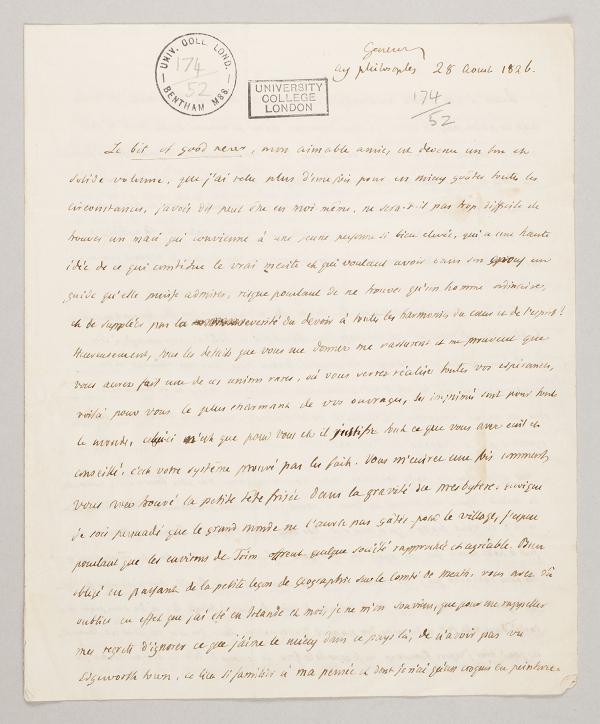 UNIV. COLL. LOND.
174
52
BENTHAM MSS.
UNIVERSITY
COLLEGE
LONDON
Geneve
28 Aout 1826.
174
52
Le bit of good news, mon aimable amie, est devenu un bon et
solide volume, que j'ai relu plus d'une fois pour en mieux goûter toutes les
circonstances, j'avois dit peut être en moi même, ne sera-t-il pas trop difficile de
trouver un mari qui convienne à une jeune personne si bien elevée, qui a une haute
idée de ce qui constitue le vrai merite et qui voulant avoir dans son epoux un
guide qu'elle puisse admirer, risque pourtant de ne trouver qu'un homme ordinaire,
et de suppléer par la severité du devoir à toutes les harmonies du cœur et de l'esprit!
Heureusement, tous les details que vous me donnez me rassurent et me prouvent que
vous aurez fait une de ces unions rares, où vous verrez réalisé toutes vos espérances,
voilà pour vous le plus charmant de vos ouvrages, les imprimés sont pour tout
le monde, celuici n'est que pour vous et il justifie tout ce que vous avez ecrit et
conseillé, c'est votre système prouvé par les faits. Vous m'ecrirez une fois comment
vous avez trouvé la petite tête frisée dans la gravité du presbytère. quoique
je sois persuadé que le grand monde ne l'aura pas gâtée pour le village, j'espere
pourtant que les environs de offrent quelque société rapprochée et agréable. Bien
obligé en passant de la petite leçon de geographie sur le Comté de Meath, vous avez dû
oublier en effet que j'ai été en Irlande et moi, je ne m'en souviens, que pour me rappeller
mes regrets d'ignorer ce que j'aime le mieux dans ce pays là, de n'avoir pas vu
Edgeworth town, ce lieu si familier à ma pensée et dont je n'ai qu'un croquis en peinture